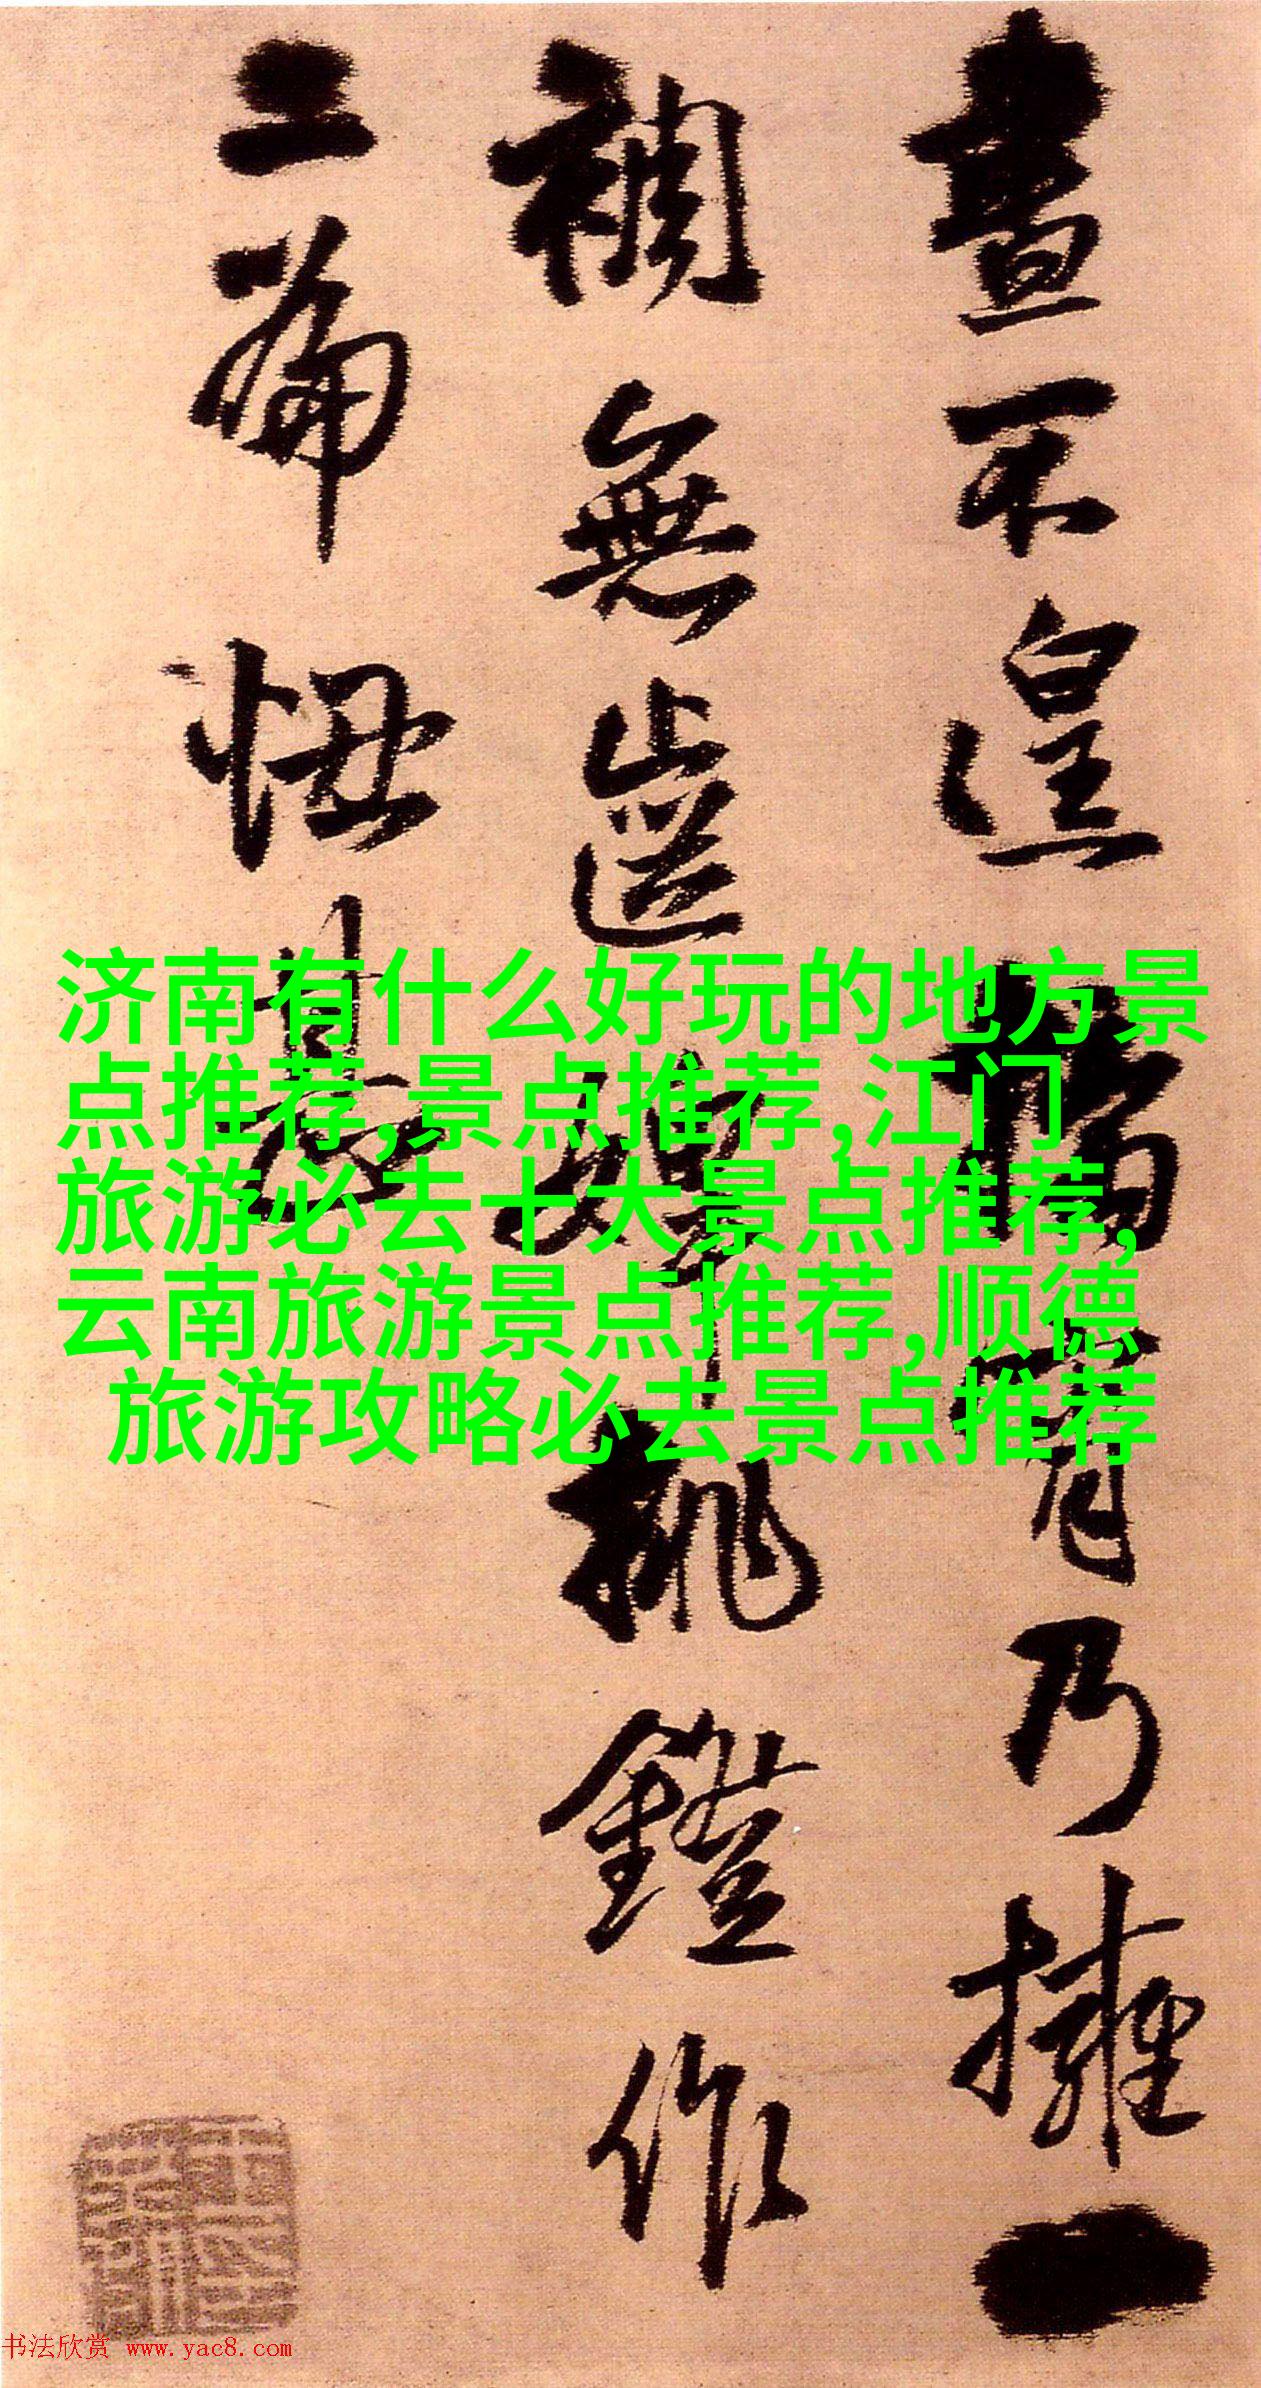 晝不遑宵乃擁一
裯無齒婢挑鐙作
二篇悔甚
济南有什么好玩的地方景
点推荐,景点推荐,江门
旅游必去十大景点推荐,
云南旅游景点推荐,顺德
旅游攻略必去景点推荐
书法欣赏 www.yac8.com